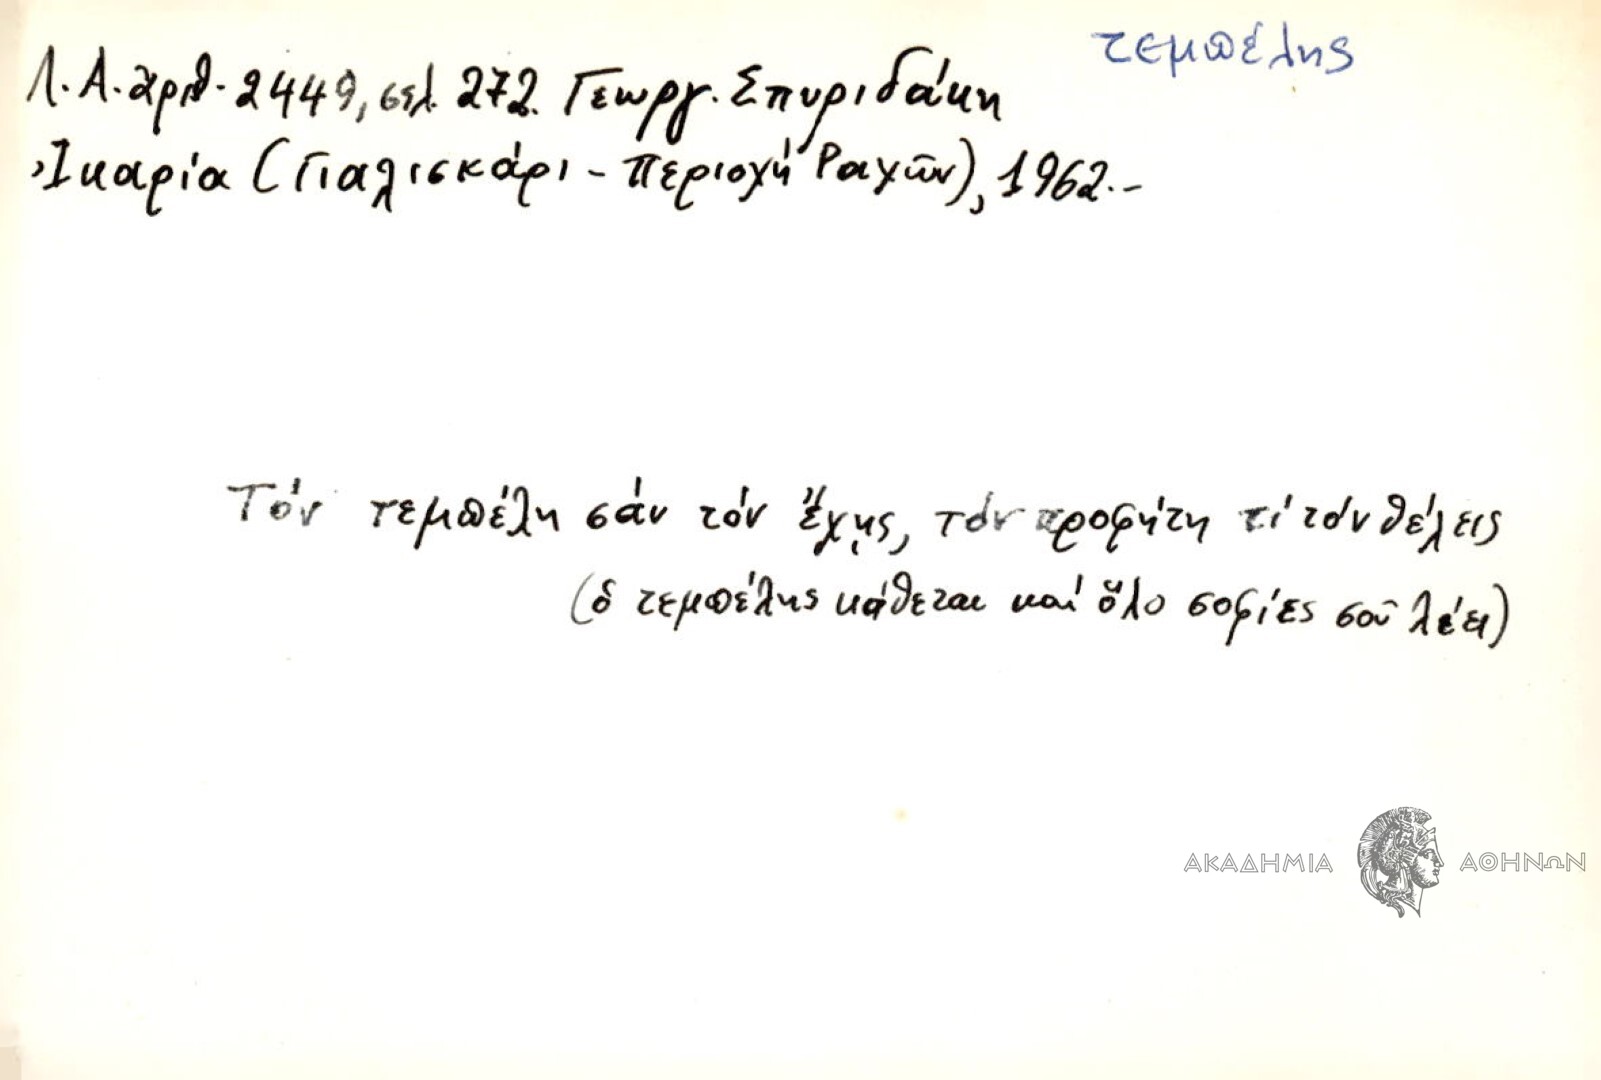 τεμπέλης
Λ.Α. ἀριθ. 2449, σελ. 272. Γεωργ. Σπυριδάκη
Ἰκαρία (Γιαλισκάρι - περιοχή Ραχῶν), 1962.-
Τόν τεμπέλη σάν τόν ἔχῃς, τόν προφήτη τί τόν θέλεις
(ὁ τεμπέλης κάθεται καί ὅλο σοφίες σοῦ λέει)
ΑΚΑΔΗΜΙΑ ΑΘΗΝΩΝ